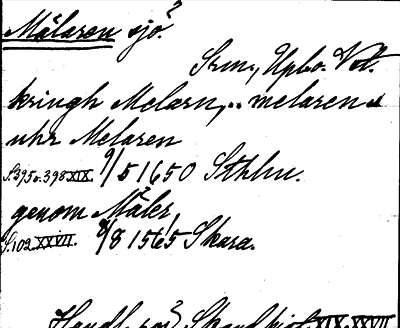 Mälaren sjö?
Srm., Upl. o. Vstl.
kringh Melarn, .. melaren
uhr Melaren
S. 395 o. 398 XIX. 9/5 1650 Sthlm.
genom Mäler
S. 102 XXVII. 8/8 1565 Skara.
Handl. rör? Skand. hist. XIX. XXVII